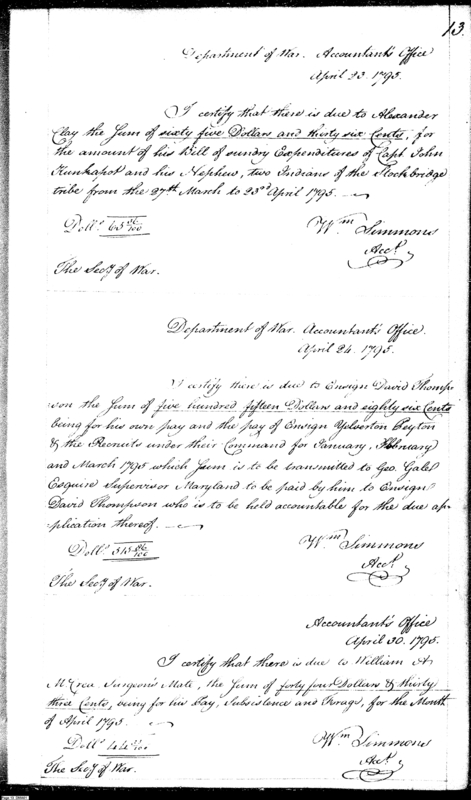 13.
Department of War. Accountant's Office
April 23. 1795.
I certify that there is due to Alexander
Clay the Sum of sixty five Dollars and thirty six Cents, for
the amount of his Bill of sundry Expenditures of Capt John
Kunkapot and his Nephew, two Indians of the Stockbridge
tribe from the 27th March to 23d April 1795.
Doll.s 65 36/100
Wm Simmons
Acct.
The Secy of War.
Department of War. Accountant's Office.
April 24. 1795.
I certify there is due to Ensign David Thomp
son the Sum of five hundred fifteen Dollars and eighty six Cents
being for his own pay and the pay of Ensign Yelverton Peyton
& the Recruits under their Command for January, February
and March 1795 which Sum is to be transmitted to Geo. Gale
Esquire Supervisor Maryland to be paid by him to Ensign
David Thompson who is to be held accountable for the due ap-
plication thereof.
Doll.s 515 86/100
Wm Simmons
Acct.
The Secy of War.
Accountant's Office
April 30. 1795.
I certify that there is due to William A
McCrea Surgeon's Mate, the Sum of forty four Dollars & thirty
three Cents, being for his Pay, Subsistence and Forage, for the Month
of April 1795.
Doll.s 44 /100
Wm Simmons
Acct.
The Secy of War.